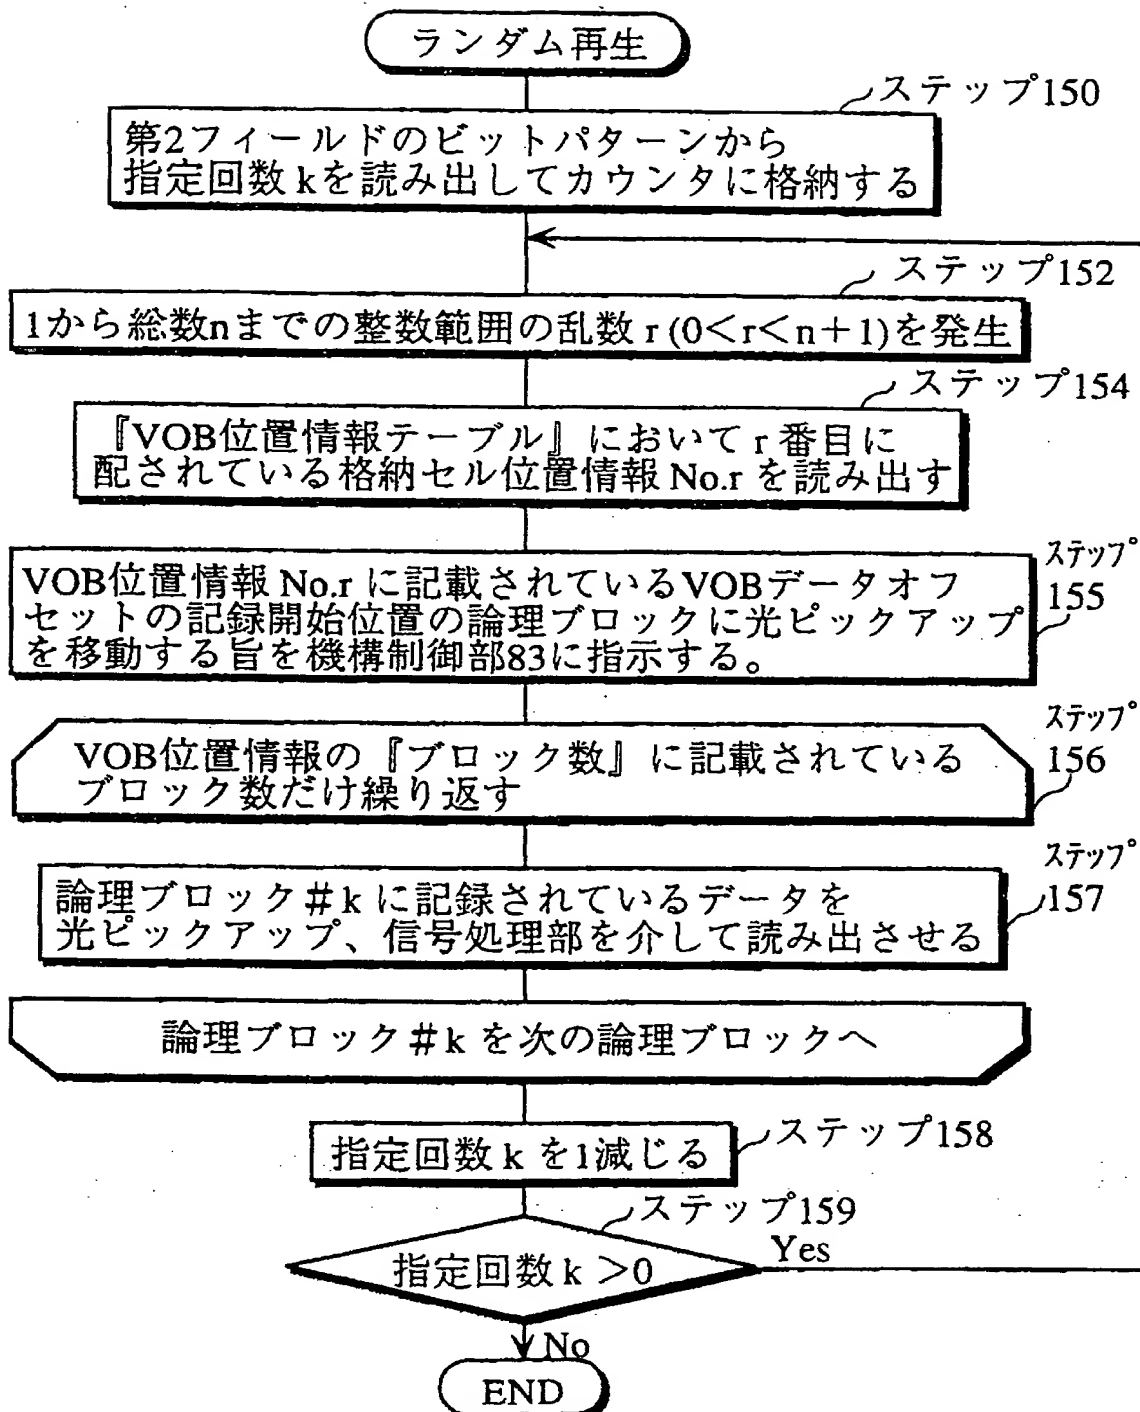 ランダム再生
ステップ150
第2フィールドのビットパターンから
指定回数kを読み出してカウンタに格納する
ステップ152
1から総数nまでの整数範囲の乱数r(0<r<n+1)を発生
ステップ154
『VOB位置情報テーブル』においてr番目に
配されている格納セル位置情報No.rを読み出す
ステップ
155
VOB位置情報No.rに記載されているVOBデータオフ
セットの記録開始位置の論理ブロックに光ピックアップ
を移動する旨を機構制御部83に指示する。
ステップ
156
VOB位置情報の『ブロック数』に記載されている
ブロック数だけ繰り返す
ステップ
157
論理ブロック#kに記録されているデータを
光ピックアップ、信号処理部を介して読み出させる
論理ブロック#kを次の論理ブロックへ
指定回数kを1減じる
ステップ158
ステップ159
指定回数k>0
Yes
No
END